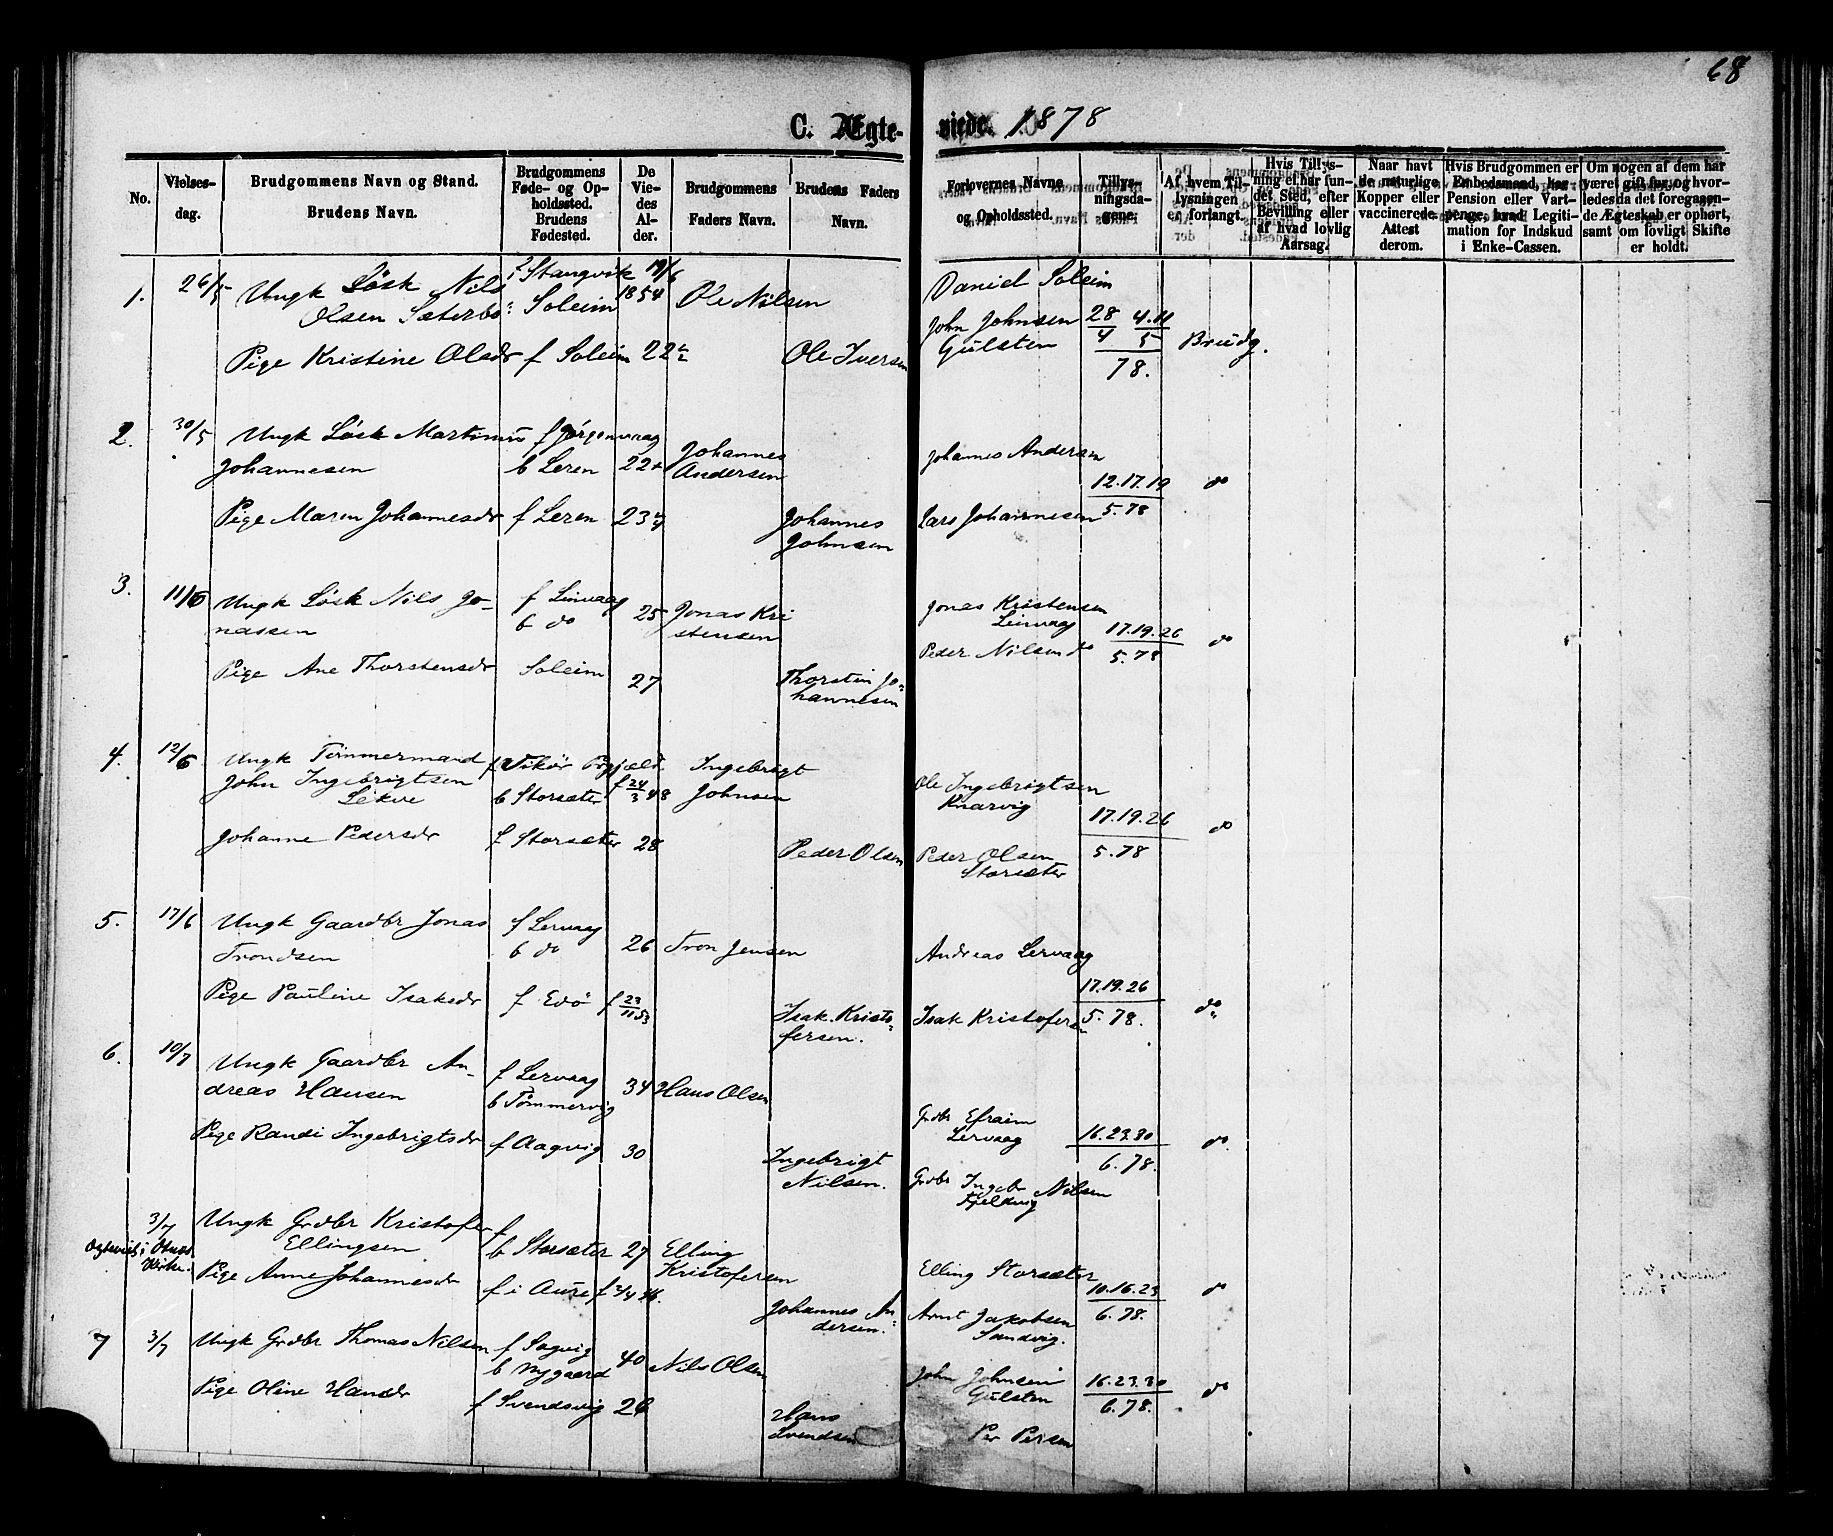 68
C. Ægte-
viede. 1878
No.
Vielses-
dag.
Brudgommens Navn og Stand.
Brudens Navn.
Brudgommens
Føde- og Op-
holdssted.
Brudens
Fødested.
De
Vie-
des
Al-
der.
Brudgommens
Faders Navn.
Brudens Faders
Navn.
Forlovernes Navne
og Opholdssted.
Tillys-
ningsda-
gene.
Af hvem Til-
lysningen
er forlangt.
Hvis Tillys-
ning ei har fun-
det Sted, efter
Bevilling eller
af hvad lovlig
Aarsag.
Naar havt
de naturlige
Kopper eller
vaccinerede.
Attest
derom.
Hvis Brudgommen er
Embedsmand, har
Pension eller Vart-
penge, hvad Legiti-
mation for Indskud
i Enke-Cassen.
Om nogen af dem har
været gift før, og hvor-
ledes da det foregaaen-
de Ægteskab er ophørt,
samt om lovligt Skifte
er holdt.
1. 26/5 Ungk Løsk Nils f Stangvik 19/6 Daniel Soleim
Olsen Sæterbø Soleim 1854 Ole Nilsen John Johnsen 28/4 4.11/5
Pige Kristine Olsdr f Soleim 22 Ole Iversen Gulsten 78. Brudg.
2. 30/5 Ungk Løsk Martinus f Jørgenvaag
Johannesen b Leren 22 Johannes Andersen Johannes Andersen
12.17.19 do
Pige Maren Johannesdr f Leren 23 Johannes Johnsen Lars Johannesen 5.78
3. 11/6 Ungk Løsk Nils Jo- f Leirvaag Jonas Kristensen
nassen b do 25 Jonas Kristensen Leirvaag 17.19.26 do
Pige Ane Thorstensdr Soleim 27 Thorstein Jo- Peder Nilsen do 5.78
hannesen
4. 12/6 Ungk Tømmermand f Vikør Prgjæld Ingebrigt
John Ingebrigtsen b Storsæter f 24/3 48 Johnsen Ole Ingebrigtsen
Lekve Knarvig 17.19.26 do
Johanne Pedersdr f Storsæter 28 Peder Olsen Peder Olsen 5.78
Storsæter
5. 17/6 Ungk Gaardbr Jonas f Lervaag
Trondsen b do 26 Tron Jensen Andreas Lervaag
17.19.26
Pige Pauline Isaksdr f Edø f 23/11 53 Isak Kristo- Isak Kristofersen 5.78. do
fersen.
6. 10/7 Ungk Gaardbr An- f Lervaag
dreas Hansen b Tømmervig 34 Hans Olsen Grdbr Efraim
Pige Randi Ingebrigtsdr f Aagvig 30 Ingebrigt Lervaag 16.23.30 do
Nilsen. 6.78.
Grdbr Ingebr Nilsen
Fjeldvig
3/7 Ungk Grdbr Kristofer f
Ægteviet i Kirke. Ellingsen b Storsæter 27 Elling Kristofersen Elling Storsæter
Pige Anne Johannesdr f i Aure f 3/4 Johannes An- 10.16.23 do
dersen. Arnt Jakobsen 6.78.
Sandvig.
7 3/7 Ungk Grdbr Thomas Nilsen f Sagvig
b Nygaard 40 Nils Olsen John Johnsen 16.23.30 do
Pige Oline Hansdr f Svendsvig 26 Gulsten 6.78.
Hans
Svendsen Per Persen